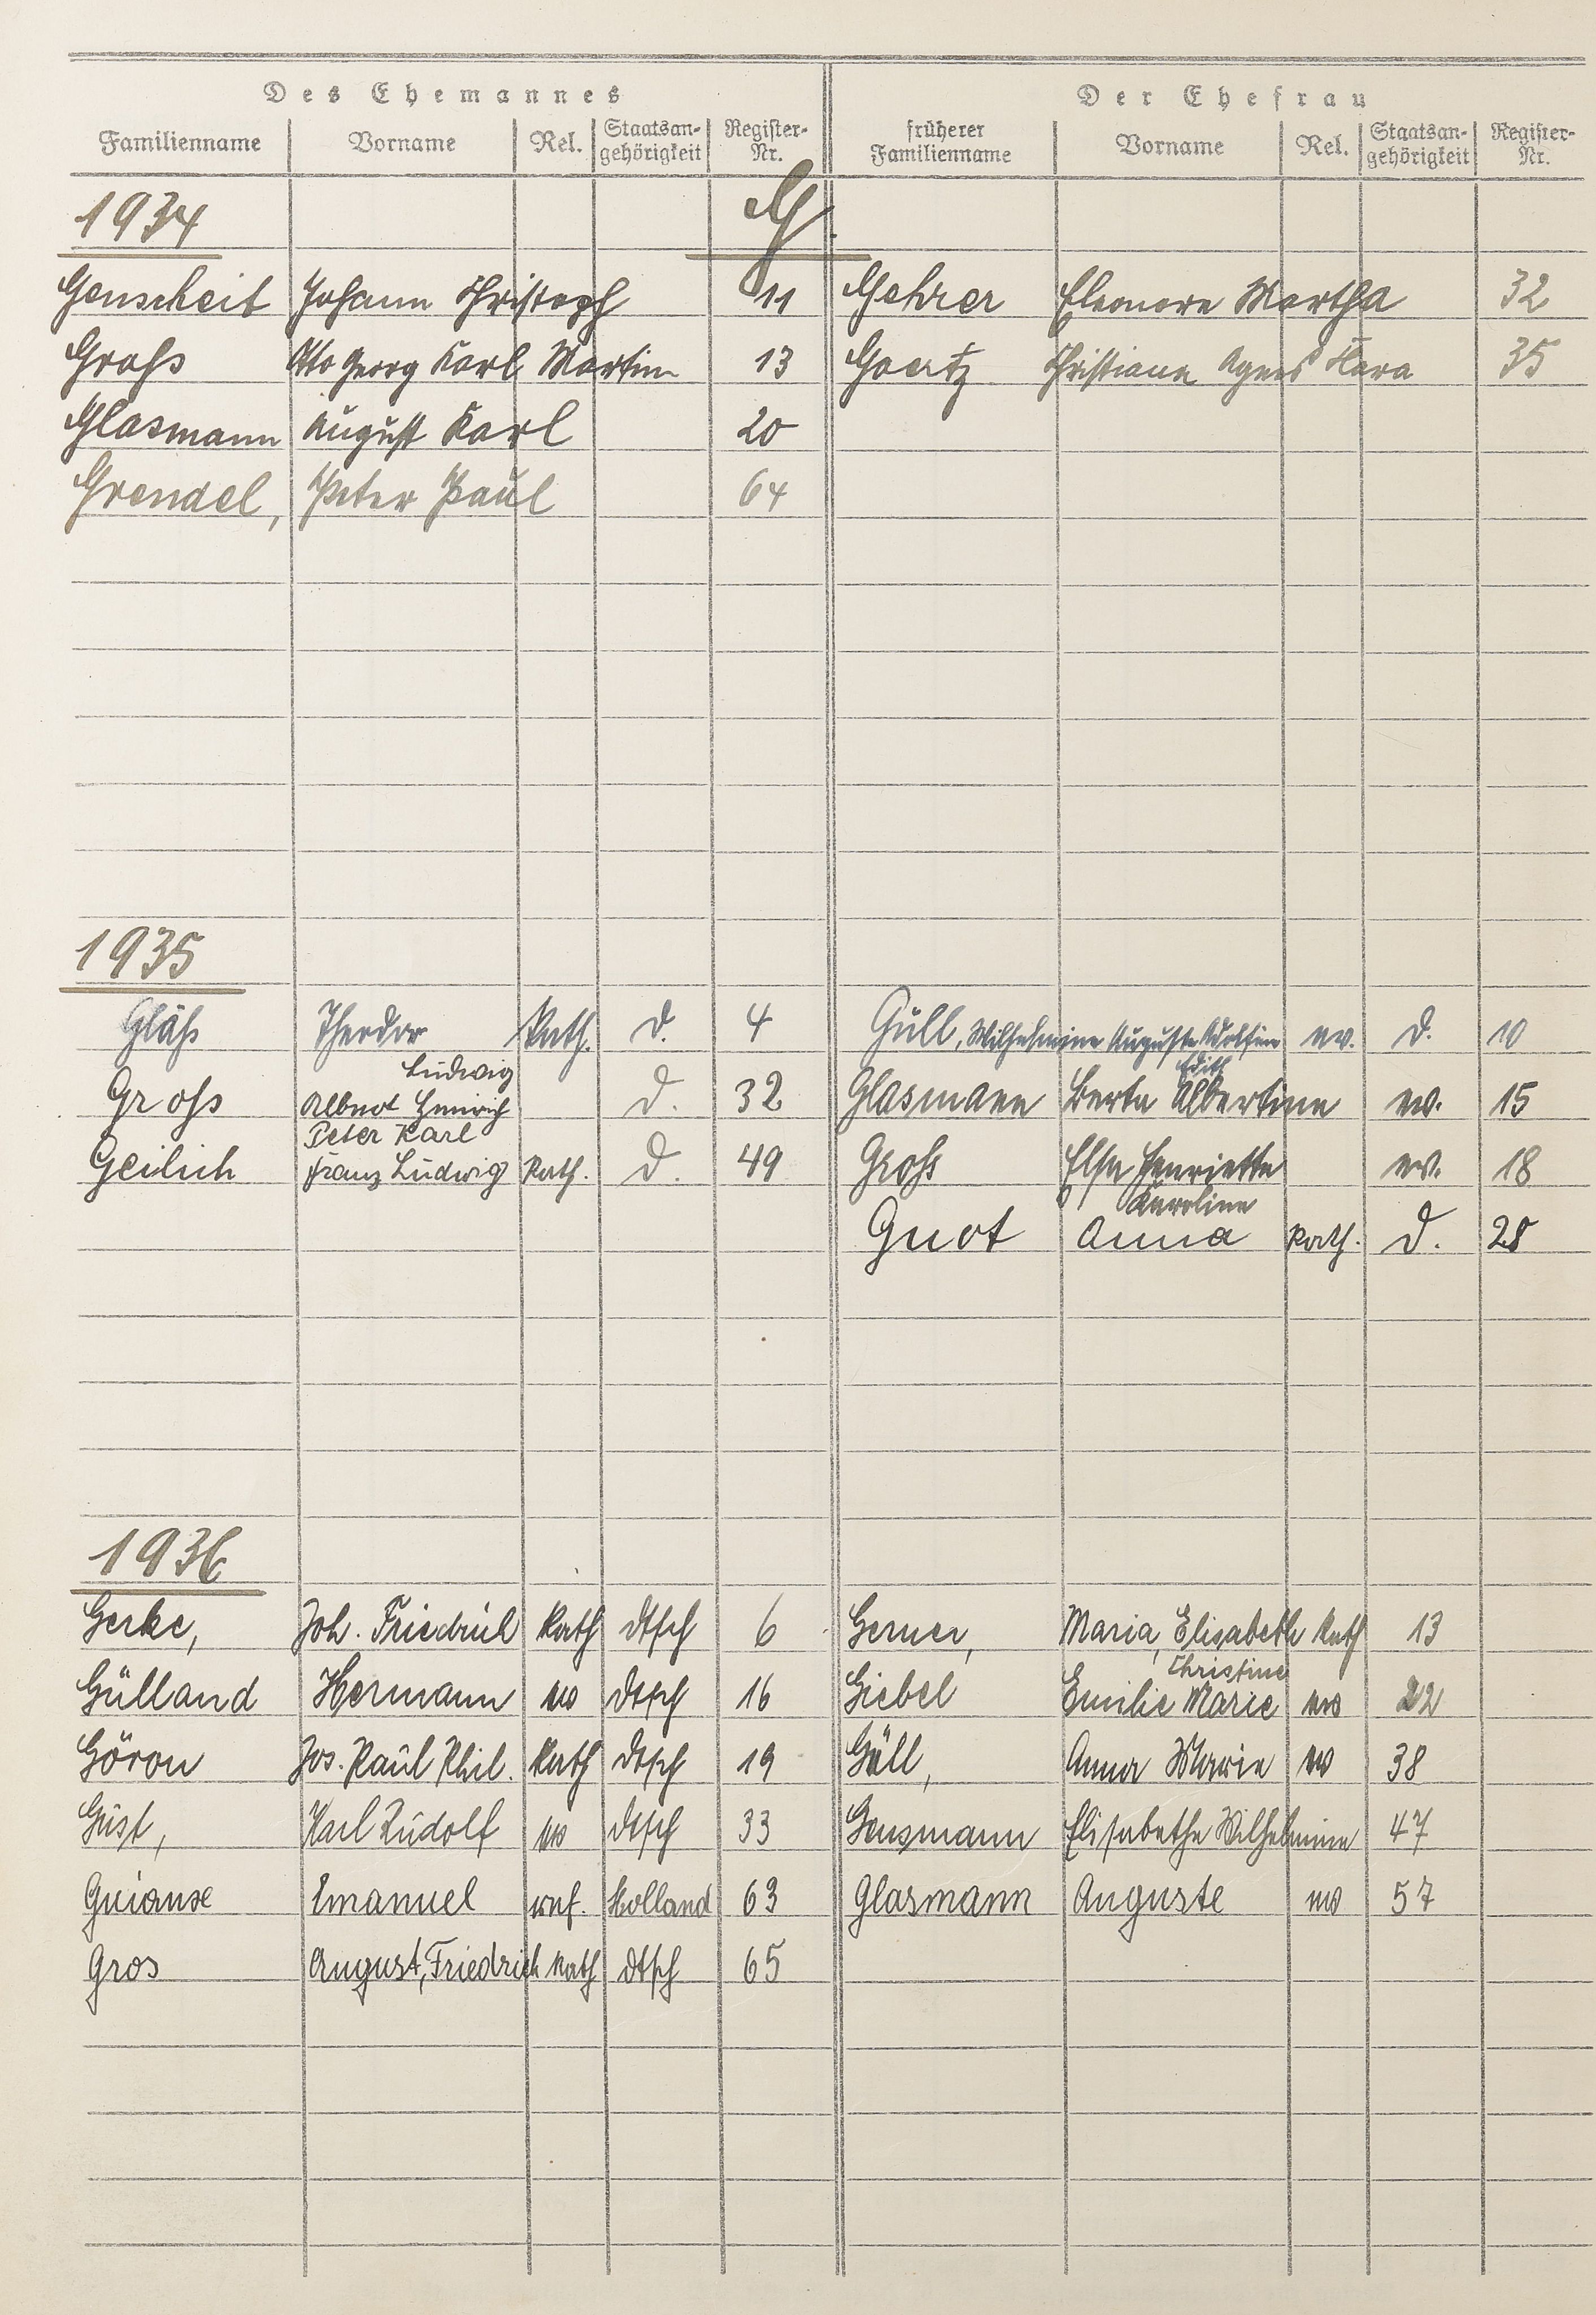 Des Ehemannes Der Ehefrau
Familienname Vorname Rel. Staatsan-gehörigkeit Register-Nr. früherer Familienname Vorname Rel. Staatsan-gehörigkeit Register-Nr.
1934 G.
Genscheit Johann Christoph 11 Gehrer Eleonore Martha 32
Groß Otto Georg Karl Martin 13 Goertz Christiane Agnes Klara 35
Glasmann August Karl 20
Grendel, Peter Paul 64
1935
Gläß Theodor Kath. d. 4 Güll, Wilhelmine Auguste Adolfine ev. d. 10
Groß Albert Heinrich Ludwig d. 32 Glasmann Berta Albertine Edith ev. 15
Geilich Peter Karl Franz Ludwig Kath. d. 49 Groß Elsa Henriette Karoline ev. 18
Guot Anna Kath. d. 28
1936
Gerke, Joh. Friedrich Kath dtsch 6 Gerner, Maria, Elisabeth Kath 13
Gülland Hermann ev dtsch 16 Giebel Emilie Marie Christine ev 22
Göron Jos. Paul Phil. Kath dtsch 19 Güll, Anna Maria ev 38
Güst, Karl Rudolf ev dtsch 33 Gensmann Elisabethe Wilhelmine 47
Emanuel ref. Holland 63 Glasmann Auguste ev 57
Gros August, Friedrich Kath dtsch 65